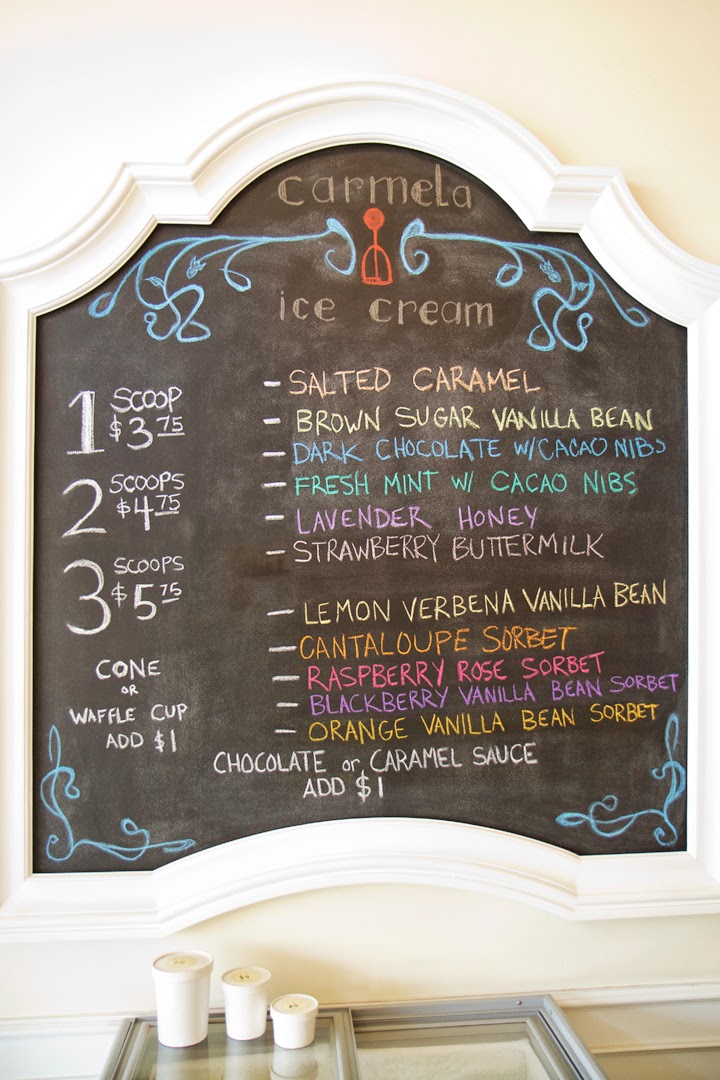 carmela
ice cream
1 SCOOP
$3.75
2 SCOOPS
$4.75
3 SCOOPS
$5.75
CONE
OR
WAFFLE CUP
ADD $1
- SALTED CARAMEL
- BROWN SUGAR VANILLA BEAN
- DARK CHOCOLATE W/CACAO NIBS
- FRESH MINT W/ CACAO NIBS
- LAVENDER HONEY
- STRAWBERRY BUTTERMILK
- LEMON VERBENA VANILLA BEAN
- CANTALOUPE SORBET
- RASPBERRY ROSE SORBET
- BLACKBERRY VANILLA BEAN SORBET
- ORANGE VANILLA BEAN SORBET
CHOCOLATE or CARAMEL SAUCE
ADD $1